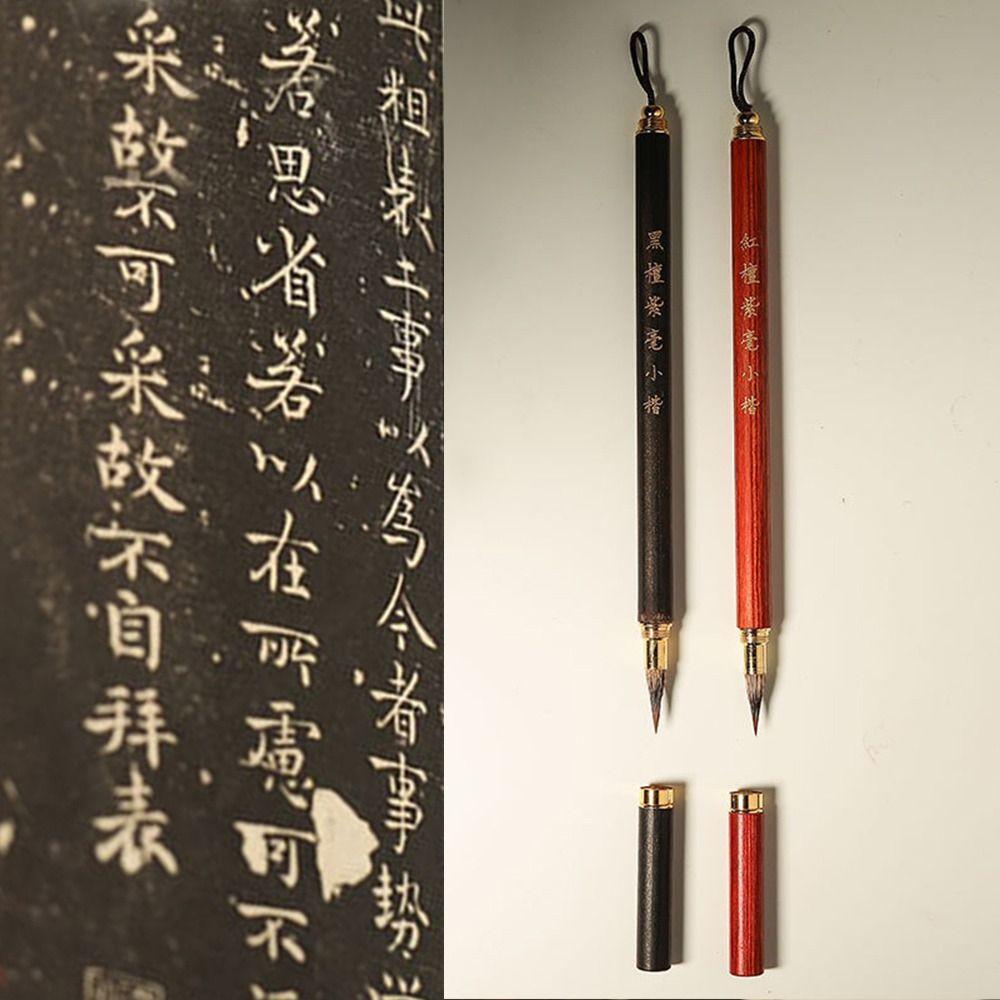 粗表二事以為今者事勢
若思省若以在所慮可不
采故不可采故不自拜表
黑檀紫毫小楷
紅檀紫毫小楷